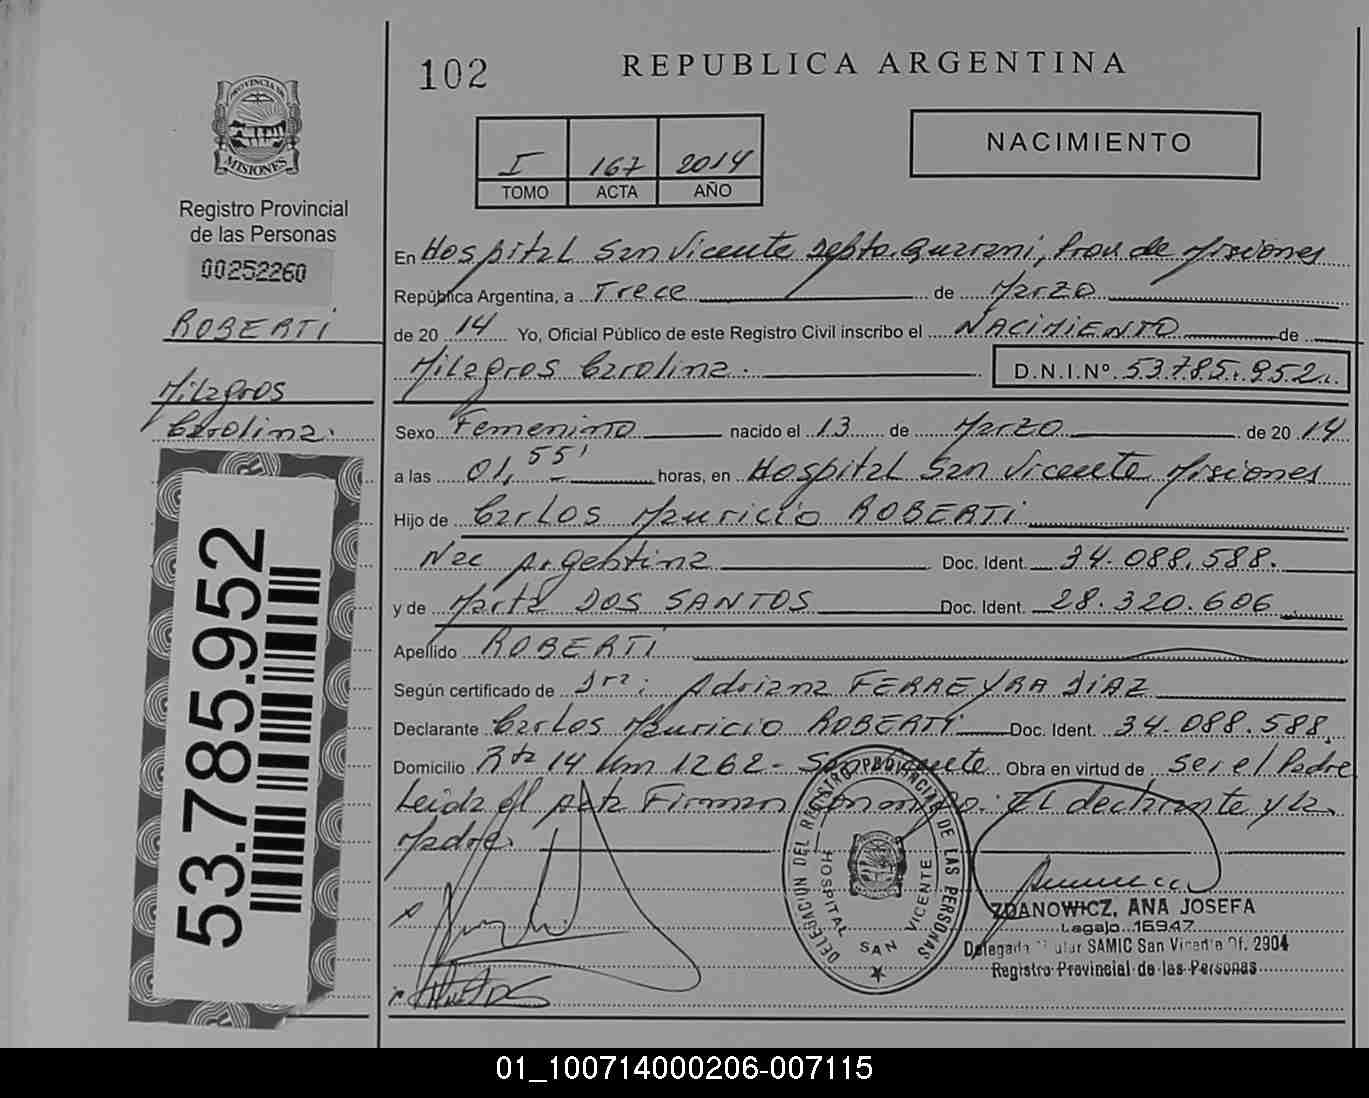 102
REPUBLICA ARGENTINA
PROVINCIA DE
MISIONES
Registro Provincial
de las Personas
00252260
ROBERTI
Milagros
Carolina.
53.785.952
NACIMIENTO
I 167 2014
TOMO ACTA AÑO
En Hospital San Vicente Depto. Guarani, Prov. de Misiones
República Argentina, a Trece de Marzo
de 20 14 Yo, Oficial Público de este Registro Civil inscribo el NACIMIENTO de
Milagros Carolina. D.N.I.Nº 53.785.952
Sexo Femenino nacido el 13 de Marzo de 20 14
a las 01,55' horas, en Hospital San Vicente Misiones
Hijo de Carlos Mauricio ROBERTI
Nac Argentina Doc. Ident. 34.088.588.
y de Marta DOS SANTOS Doc. Ident. 28.320.606
Apellido ROBERTI
Según certificado de Dra: Adriana FERREYRA DIAZ
Declarante Carlos Mauricio ROBERTI Doc. Ident. 34.088.588.
Domicilio Rta 14 km 1262 - San Vicente Obra en virtud de ser el Padre
Leida el acta Firman conmigo: El declarante y la
Madre.
DELEGACIÓN DEL REGISTRO PROVINCIAL DE LAS PERSONAS
HOSPITAL SAN VICENTE
ZDANOWICZ, ANA JOSEFA
Legajo 16947
Delegada Titular SAMIC San Vicente Of. 2904
Registro Provincial de las Personas
01_100714000206-007115